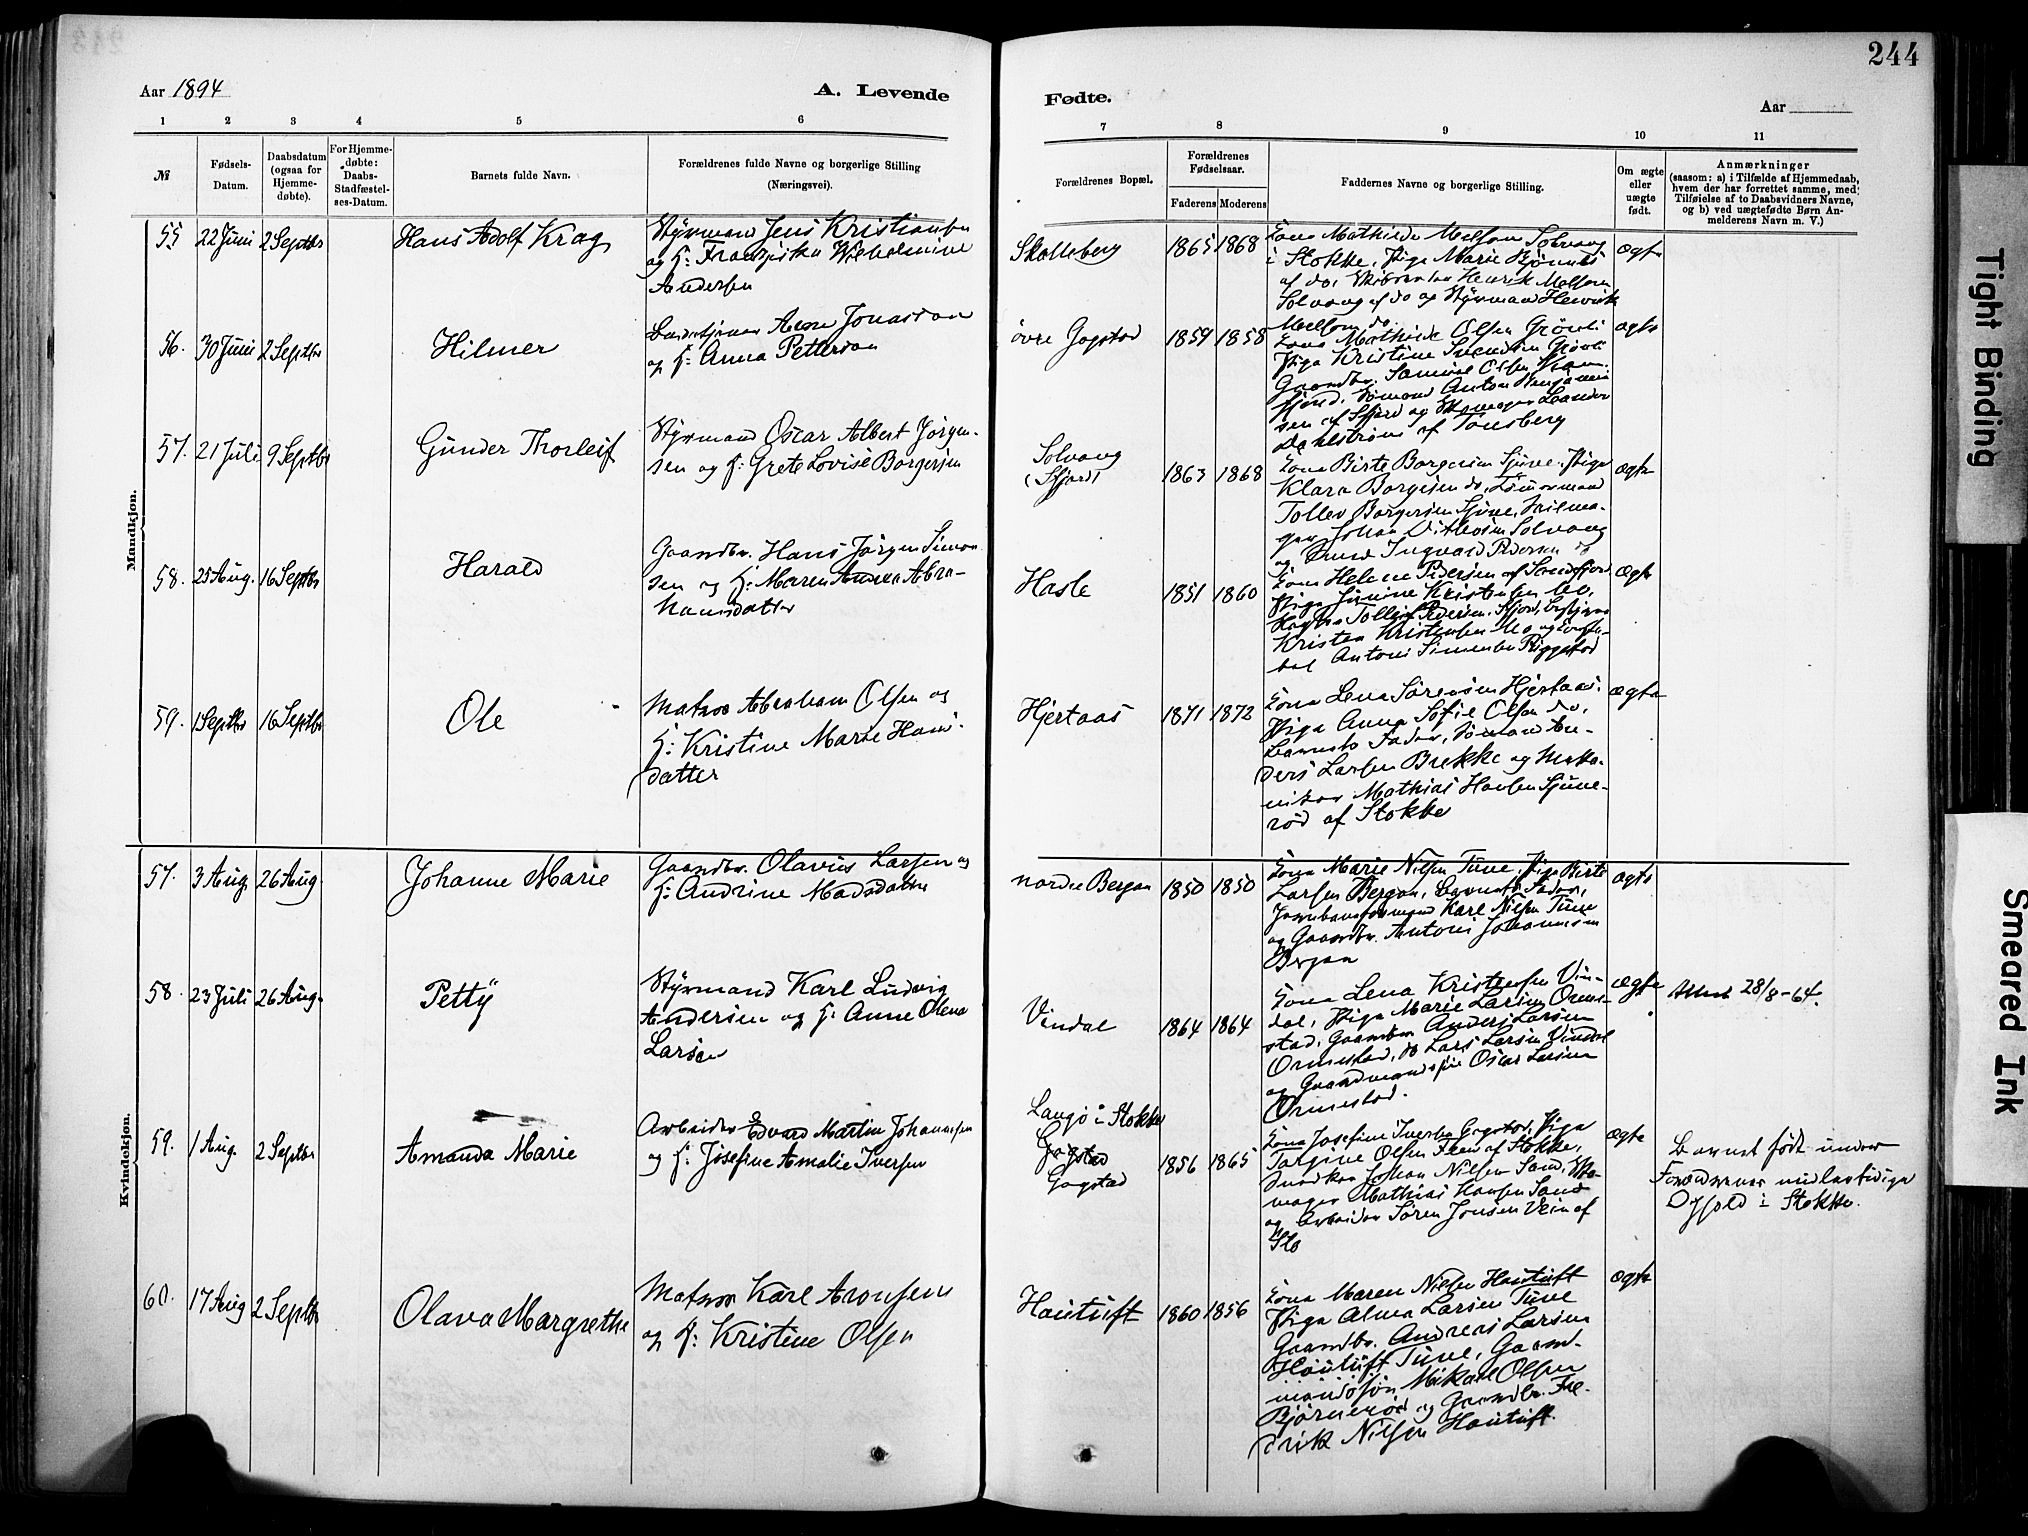 244
Aar 1894
A. Levende
Fødte.
Aar
1 2 3 4 5 6 7 8 9 10 11
№
Fødsels-
Datum.
Daabsdatum
(ogsaa for
Hjemme-
døbte).
For Hjemme-
døbte:
Daabs-
Stadfæstel-
ses-Datum.
Barnets fulde Navn.
Forældrenes fulde Navne og borgerlige Stilling
(Næringsvei).
Forældrenes Bopæl.
Forældrenes
Fødselsaar.
Faderens Moderens
Faddernes Navne og borgerlige Stilling.
Om ægte
eller
uægte
født.
Anmærkninger
(saasom: a) i Tilfælde af Hjemmedaab,
hvem der har forrettet samme, med
Tilføielse af to Daabsvidners Navne,
og b) ved uægtefødte Børn An-
melderens Navn m. V.)
Mandkjøn.
55 22 Juni 2 Septbr
Hans Adolf Krag
Styrmand Jens Kristiansen
og H: Franziska Wilhelmine
Andersen
Skalleberg
1865 1868
Kona Mathilde Melsom Solvang
i Stokke, Pige Marie Bjønnes
af do, Henrik Melsom
Solvang af do og Styrmand Henrik
Melsom do
ægte
56. 30 Juni 2 Septbr
Hilmer
Jonasson
og H: Anna Petterson
övre Gogstad
1859 1858
Kona Mathilde Olsen Grönli
Pige Kristine Svendsen Grönli
Gaardbr. Samuel Olsen Fram-
Sömand Anton Benjamin-
sen af Sfjord og Skomager Leander
Dahlström af Tönsberg
ægte
57. 21 Juli 9 Septbr
Gunder Thorleif
Styrmand Oscar Albert Jörgen-
sen og H: Grete Lovise Borgersen
Solvang
(Sfjord)
1863 1868
Kona Birte Borgersen Sjuve, Pige
Klara Borgersen do, Tömmermand
Tollev Borgersen Sjuve, Seilma-
ger Johan Ditlevsen Solvang
og Ingvard Pedersen do
ægte
58. 25 Aug. 16 Septbr
Harald
Gaardbr. Hans Jörgen Simon-
sen og H: Maren Andrea Abra-
hamsdatter
Hasle
1851 1860
Kona Helene Pedersen af Sandefjord
Pige Simine Kristensen Mo,
Tollef Pedersen, Sfjord,
Kristen Kristensen Mo og
Antoni Simensen
ægte
59. 1 Septbr 16 Septbr
Ole
Matros Abraham Olsen og
H: Kristine Marie Hans-
datter
Hjertaas
1871 1872
Kona Lena Sörensen Hjertaas,
Pige Anna Sofie Olsen do,
Barnets Fader, Sömand An-
ders Larsen Brekke og Meka-
niker Mathias Hansen Sjuve-
röd af Stokke
ægte
Kvindekjøn.
57. 3 Aug 26 Aug.
Johanne Marie
Gaardbr. Olavus Larsen og
H: Andrine Madsdatter
nordre Bergan
1850 1850
Kona Marie Nilsen Tuve, Pige Birte
Larsen Bergan, Barnets Fader,
Jernbaneformand Karl Nilsen Tuve
og Gaardbr. Antoni Johannesen
Bergan
ægte
58. 23 Juli 26 Aug.
Petty
Styrmand Karl Ludvig
Andersen og H: Anne Olena
Larsen
Vindal
1864 1864
Kona Lena Kristensen Vin-
dal, Pige Marie Larsen Orme-
stad, Gaardbr. Anders Larsen
Ormestad, do Lars Larsen Vindal
og Gaardmandssön Oscar Larsen
Ormestad.
ægte
Attest 28/8-64.
59. 1 Aug. 2 Septbr
Amanda Marie
Arbeider Edvard Martin Johannesen
og H: Josefine Amalie Iversen
Langö i Stokke
Gogstad
Gogstad
1856 1865
Kona Josefine Iversen Gogstad, Pige
Torgine Olsen Feen af Stokke,
Snedker Johan Nilsen Sand, Sko-
mager Mathias Hansen Sand
og Arbeider Sören Jonsen Vein af
Sto
ægte
Barnet födt under
Forældrenes midlertidige
Ophold i Stokke.
60. 17 Aug 2 Septbr
Olava Margrethe
Matros Karl Aronsen
og H: Kristine Olsen
Hautuft
1860 1856
Kona Maren Nilsen Hautuft
Pige Alma Larsen Tuve
Gaardbr. Andreas Larsen
Hautuft Tuve, Gaard-
mandssön Mikael Olsen
Bjørneröd og Gaardbr. Fre-
drik Nilsen Hautuft.
ægte
Tight Binding
Smeared Ink